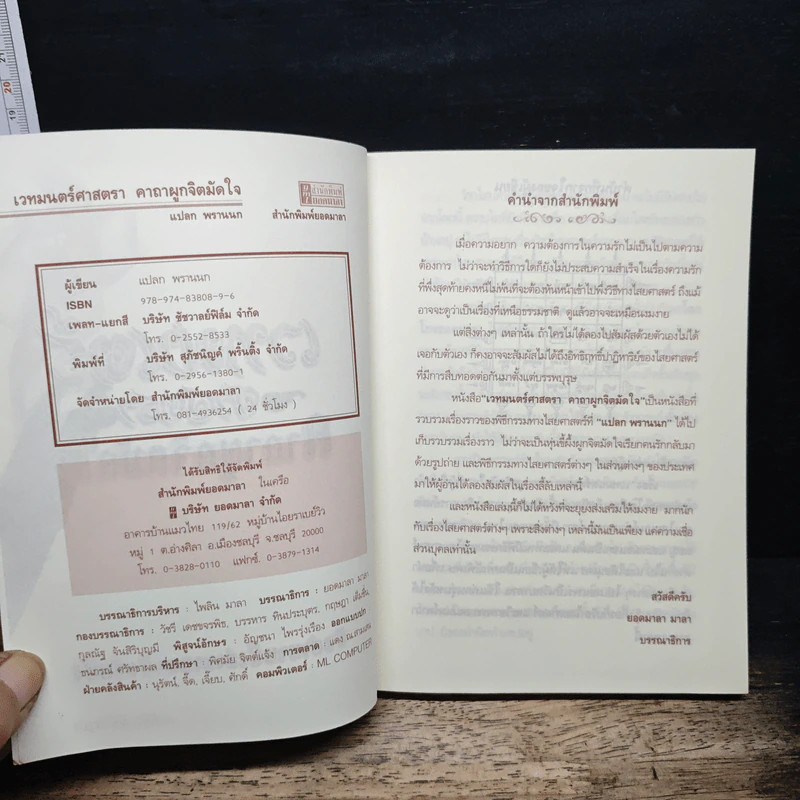 เวทมนตร์ศาสตรา คาถาผูกจิตมัดใจ
แปลก พรานนก
สำนักพิมพ์
ยอดมาลา
สำนักพิมพ์ยอดมาลา
ผู้เขียน แปลก พรานนก
ISBN 978-974-83808-9-6
เพลท-แยกสี บริษัท ชัชวาลย์ฟิล์ม จำกัด
โทร. 0-2552-8533
พิมพ์ที่ บริษัท สุภัชนิญค์ พริ้นติ้ง จำกัด
โทร. 0-2956-1380-1
จัดจำหน่ายโดย สำนักพิมพ์ยอดมาลา
โทร. 081-4936254 ( 24 ชั่วโมง )
ได้รับสิทธิให้จัดพิมพ์
สำนักพิมพ์ยอดมาลา ในเครือ
บริษัท ยอดมาลา จำกัด
อาคารบ้านแมวไทย 119/62 หมู่บ้านไอยราเบย์วิว
หมู่ 1 ต.อ่างศิลา อ.เมืองชลบุรี จ.ชลบุรี 20000
โทร. 0-3828-0110 แฟกซ์. 0-3879-1314
บรรณาธิการบริหาร : ไพลิน มาลา บรรณาธิการ : ยอดมาลา มาลา
กองบรรณาธิการ : วัชรี เดชขจรพิช, บรรหาร ทินประบุตร, กฤษฎา เต็มชื่น,
กุลณัฐ จันสิริบุญมี พิสูจน์อักษร : อัญชนา ไพรรุ่งเรือง ออกแบบปก
ธนภรณ์ ศรัทธาผล ที่ปรึกษา : พิศมัย จิตต์แจ้ง การตลาด : แดง
ฝ่ายคลังสินค้า : นุรัตน์, จี๊ด, เจี๊ยบ, ศักดิ์ คอมพิวเตอร์ : ML COMPUTER
คำนำจากสำนักพิมพ์
เมื่อความอยาก ความต้องการในความรักไม่เป็นไปตามความ
ต้องการ ไม่ว่าจะทำวิธีการใดก็ยังไม่ประสบความสำเร็จในเรื่องความรัก
ที่พึ่งสุดท้ายคงหนีไม่พ้นที่จะต้องหันหน้าเข้าไปพึ่งวิธีทางไสยศาสตร์ ถึงแม้
อาจจะดูว่าเป็นเรื่องที่เหนือธรรมชาติ ดูแล้วอาจจะเหมือนงมงาย
แต่สิ่งต่างๆ เหล่านั้น ถ้าใครไม่ได้ลองไปสัมผัสด้วยตัวเองไม่ได้
เจอกับตัวเอง ก็คงอาจจะสัมผัสไม่ได้ถึงอิทธิฤทธิ์ปาฏิหาริย์ของไสยศาสตร์
ที่มีการสืบทอดต่อกันมาตั้งแต่บรรพบุรุษ
หนังสือ“เวทมนตร์ศาสตรา คาถาผูกจิตมัดใจ”เป็นหนังสือที่
รวบรวมเรื่องราวของพิธีกรรมทางไสยศาสตร์ที่ “แปลก พรานนก” ได้ไป
เก็บรวบรวมเรื่องราว ไม่ว่าจะเป็นหุ่นขี้ผึ้งผูกจิตมัดใจเรียกคนรักกลับมา
ด้วยรูปถ่าย และพิธีกรรมทางไสยศาสตร์ต่างๆ ในส่วนต่างๆ ของประเทศ
มาให้ผู้อ่านได้ลองสัมผัสในเรื่องลี้ลับเหล่านี้
และหนังสือเล่มนี้ก็ไม่ได้หวังที่จะยุยงส่งเสริมให้งมงาย มากนัก
กับเรื่องไสยศาสตร์ต่างๆ เพราะสิ่งต่างๆ เหล่านี้มันเป็นเพียง แค่ความเชื่อ
ส่วนบุคลเท่านั้น
สวัสดีครับ
ยอดมาลา มาลา
บรรณาธิการ
19
20
21